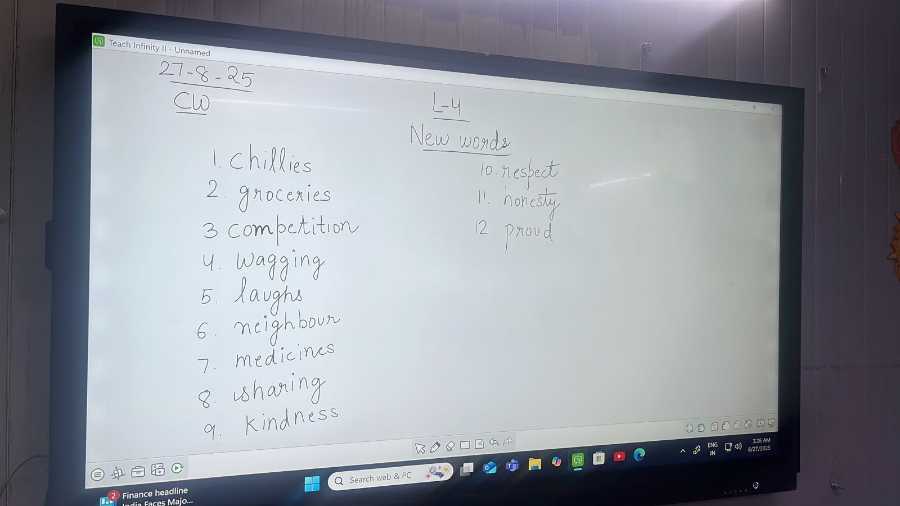 Teach Infinity II - Unnamed
27-8-25
CW
L-4
New words
1. chillies
2. groceries
3 competition
4. wagging
5. laughs
6. neighbour
7. medicines
8. sharing
9. kindness
10. respect
11. honesty
12 proud
Search web & PC
ENG
IN
3:26 AM
8/27/2025
2
Finance headline
India Faces Majo...